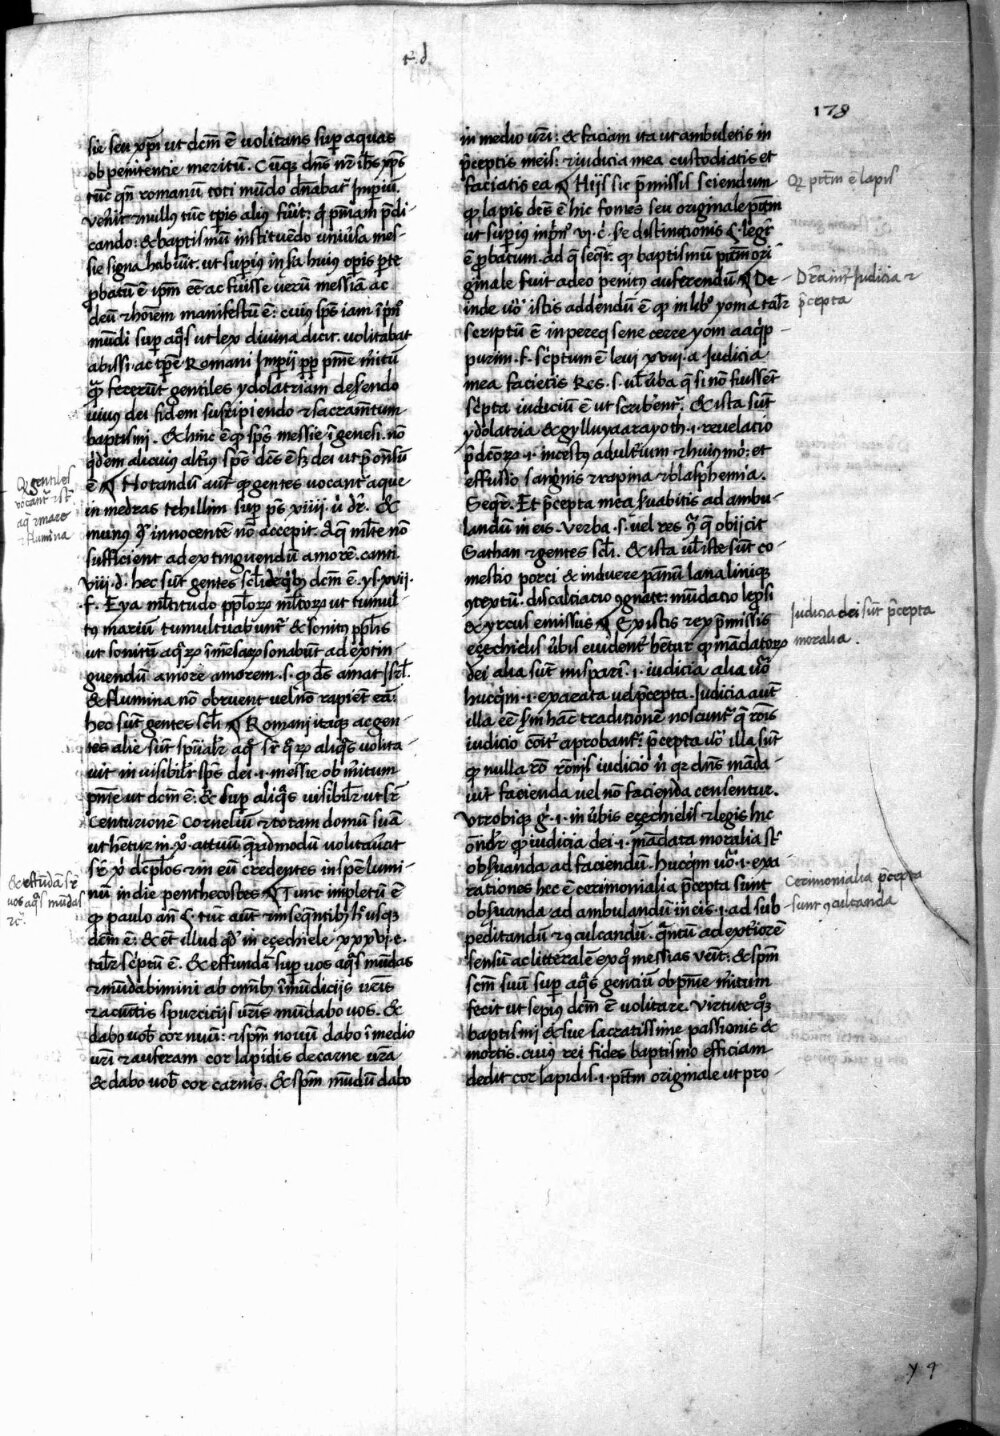 r. d.
178
sie seu xp̄i ut dcm̄ ē uolitans suꝑ aquas
ob penitentie meritū. Cūqꝫ dn̄s nr̄ ih̄s xp̄s
tūc qn̄ romanum toti mūdo dn̄abat᷑ Impiū
venit ⁊ nullꝰ tūc tp̄is aliꝰ fuit: q̄ pn̄iam p̄di-
cando: & baptismū instituēdo uniu̓sa mes-
sie signa habuit. ut supiꝰ in huiꝰ opis ꝑte
ꝓbatū ē ip̄m eē ac fuisse uerū messiā ac
deū & hoīem manifestū ē: cuiꝰ sp̄s iam
mūdi suꝑ aq̄s ut lex diuina dicit. uolitabat
abissi. ac tp̄e Romani Impij ꝓꝑ pn̄ie m̓itū
q̄ fecerūt gentiles ydolatriam deserendo
uiuꝰ dei fidem suscipiendo ⁊ sacram̄tum
baptismi. & hinc ē qꝫ sp̄s messie ī genesi. nō
q̓dem alicuiꝰ altiꝰ sp̄s dc̄s ē sꝫ dei ut p̄onsū
ē ¶ Notandū aut̄ qꝫ gentes vocant᷑ aque
in medras tehillim suꝑ p̄s xviij. ubi dr̄. &
munꝰ innocentē nō accepit. Aq̄ ml̄te nō
sufficient ad extinguendū amorē. canti.
viij. d. hec sūt gentes scl̄i de qb̓ꝰ dcm̄ ē. ys. xvij.
f. Eya ml̄titudo ppl̄oꝝ ml̄toꝝ ut tumul-
tꝰ mariū tumultuabunt᷑ & sonitꝰ ppl̄is
ut sonitū aq̄ꝝ īmēsaꝝ sonabūt ad extin-
guendū amorē amorem. s. qꝫ ds̄ amat Isrl̄.
& flumina nō obruent vel nō rapiēt eā:
hec sūt gentes scl̄i ¶ Romani itaqꝫ ac gen-
tes alie sūt spūalr̄ aq̄ sꝛ̄ q̄ꝝ aliq̄s uolita-
uit inuisibilr̄ sp̄s dei. i. messie ob m̓itum
pn̄ie ut dcm̄ ē: & suꝑ aliq̄s visibilr̄ ut sꝛ̄
Centurionē Corneliū & totam domū suā
ut hētur in xꝰ. actuū quēadmodū uolitauit
sꝛ̄ xi dcīplos ⁊ in eū credentes in spē lumi-
nū in die penthecostes ¶ Tunc impletū ē
qꝫ paulo an̄ & tūc aut̄ ⁊ in seq̄ntibꝰ usqꝫ
dcm̄ ē: & et̄ illud qd̓ in eȝechiele xxxvi. e.
talr̄ sc̓ptū ē. & effundā suꝑ vos aq̄s mūdas
⁊ mūdabimini ab omībꝰ īmūdicijs ur̄is
⁊ a cūctis spurcicijs ur̄is mūdabo vos. &
dabo vob̓ cor nouū: ⁊ spm̄ nouū dabo ī medio
ur̄i ⁊ auferam cor lapidis de carne ur̄a
& dabo uob̓ cor carnis. & spm̄ mūdū dabo
Qꝫ gentiles
vocant᷑ ⁊ sūt
aq̄ ⁊ mare
⁊ flumina
& effūdā sꝛ̄
uos aq̄s mūdas
⁊c̄
in medio ur̄i: & faciam ita ut ambuletis in
p̄ceptis meis: ⁊ iudicia mea custodiatis et
faciatis ea ¶ Hijs sic p̄missis sciendum
qꝫ lapis dcs̄ ē hic fomes seu originale pctm̄
ut supius in pn̄ᵒ vi. c̄. se distinctionis ꝉ leg̓
ē ꝓbatum. ad qꝫ seqt᷑. qꝫ baptismū pctm̄ ori
ginale fuit adeo penitꝰ auferendū ¶ De
inde uō istis addendū ē qꝫ in libᵒ yoma talr̄
scriptū ē in pereq sene ceere yom aaqꝫp
purim. f. sc̓ptum ē leui xviij. a iudicia
mea facietis Res. s. ul̄ u̓ba q̄ si nō fuissēt
sc̓pta iudiciū ē ut scriberent᷑. & ista sūt
ydolatria & gylluyaarayoth .i. reuelatio
p̄dcōꝝ .i. incestꝰ adult̓ium ⁊ huiꝰ moi: et
effusio sangīnis ⁊ rapina ⁊ blasphemia.
Seqr̄. Et p̄cepta mea s̓uabitis ad ambu-
landū in eis. Verba. s. vel res q̄ obijcit
Sathan ⁊ gentes scl̄i. & ista ul̄ iste sūt co-
mestio porci & induere pānū lana linoqꝫ
ꝯtextū. discalciatio ꝯgnate: mūdatio lepsi
& yrcus emissus ¶ Ex istis ⁊ ex p̄missis
eȝechielis u̓bis euident̓ hētur qꝫ mādatoꝝ
dei alia sūt mispatim .i. iudicia alia uō
hucqim .i. exarata vel p̄cepta. Judicia aut̄
illa eē s̄m hāc traditionē noscunt᷑ q̄ rōnis
iudicio coīt̓ aprobant᷑: p̄cepta uō illa sūt
qꝫ nulla rō rōnis iudicio ni qꝫ dn̄s māda-
uit facienda vel nō facienda censentur.
Utrobiqꝫ g̓ .i. in u̓bis eȝechielis ⁊ legis hic
ōndit̓ qꝫ iudicia dei .i. mādata moralia sūt
obs̓uanda ad faciendū. Hucqim uō .i. exa
rationes hec ē cerimonialia p̄cepta sunt
obs̓uanda ad ambulandū in eis .i. ad sub
peditandū ⁊ ꝯculcandū. q̄ntū ad ext̓iorē
sensū ac litteralē ex q̄ messias uenit: & spm̄
scm̄ suū suꝑ aq̄s gentiū ob pn̄ie m̓itum
fecit ut sepius dcm̄ ē volitare. Virtute qꝫ
baptismi & sue sacratissime passionis &
mortis. cuiꝰ rei fides baptismo efficiam
dedit cor lapidis .i. pctm̄ originale ut pro-
Qꝫ pctm̄ ē lapis
Dr̄a int̓ Iudicia ⁊
p̄cepta
Iudicia dei sūt p̄cepta
moralia.
Cerimonialia p̄cepta
sunt ꝯculcanda
y 4